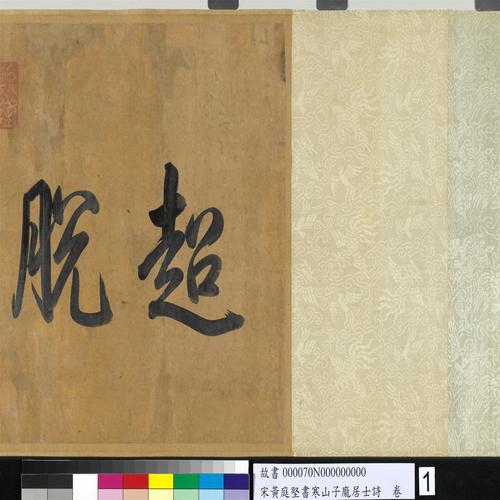 超脫
故書 000070N000000000
宋黃庭堅書寒山子龐居士詩 卷
1